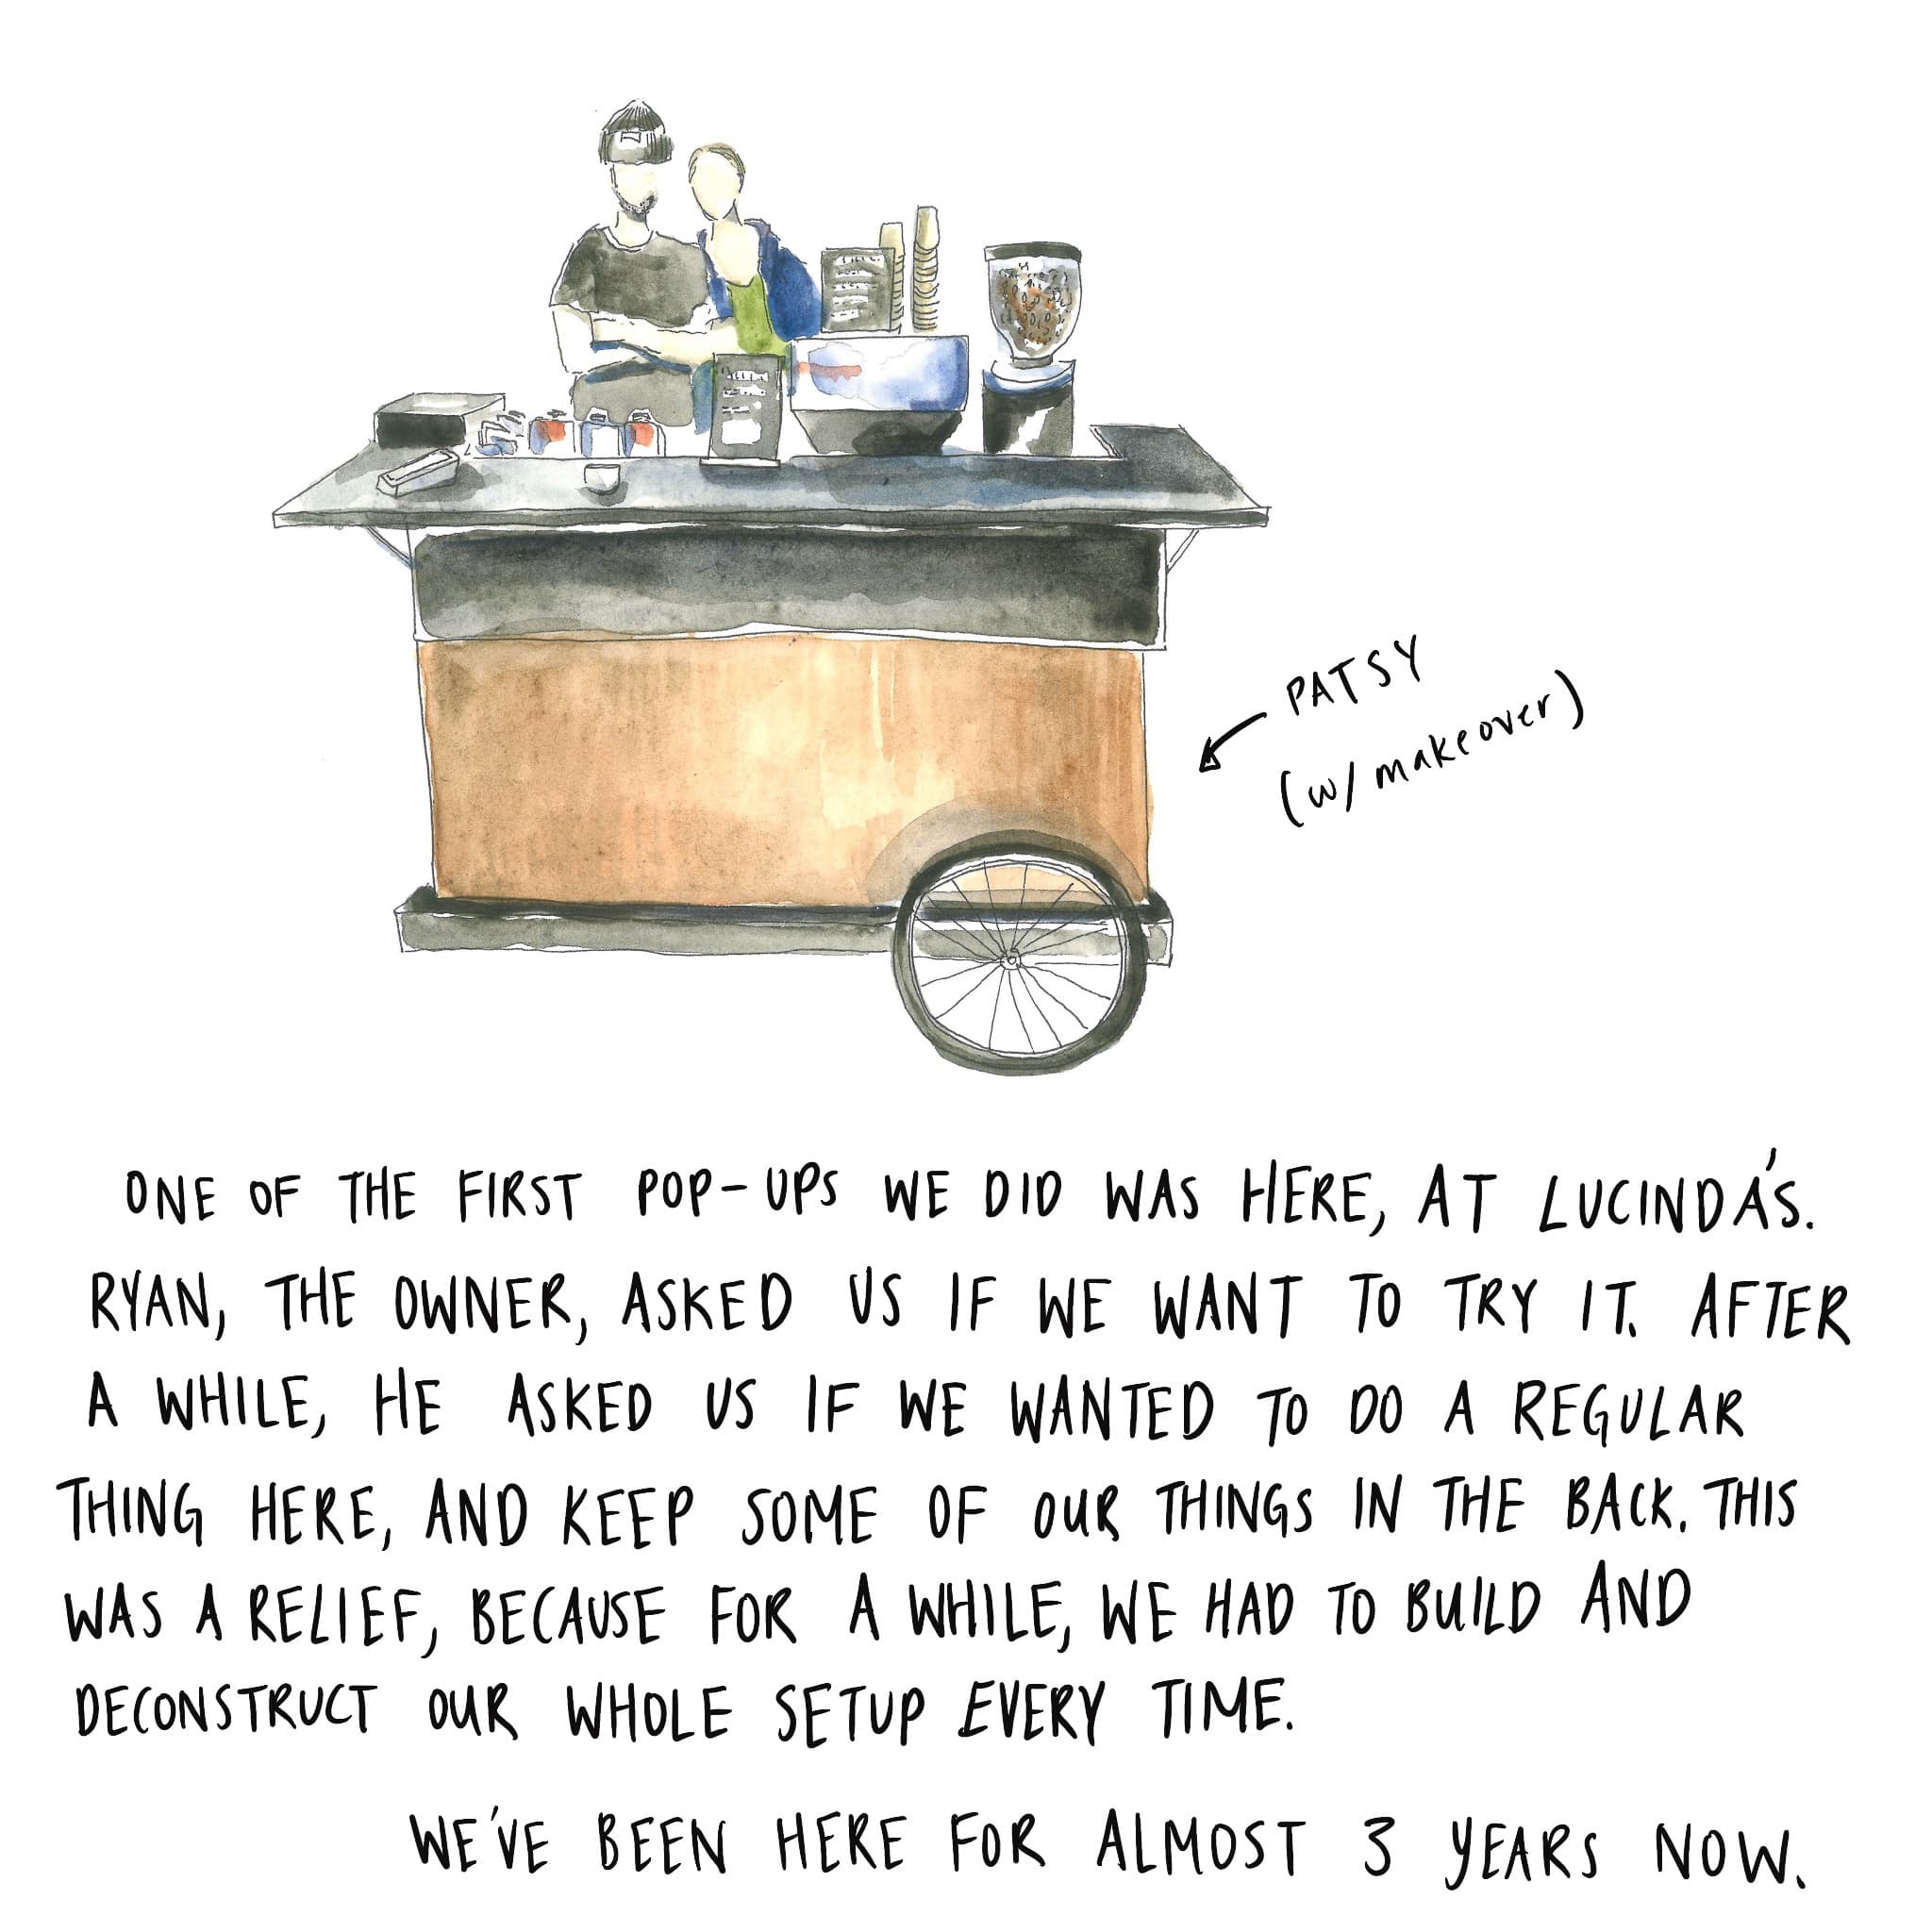 PATSY
(w/ makeover)
ONE OF THE FIRST POP-UPS WE DID WAS HERE, AT LUCINDA'S.
RYAN, THE OWNER, ASKED US IF WE WANT TO TRY IT. AFTER
A WHILE, HE ASKED US IF WE WANTED TO DO A REGULAR
THING HERE, AND KEEP SOME OF OUR THINGS IN THE BACK. THIS
WAS A RELIEF, BECAUSE FOR A WHILE, WE HAD TO BUILD AND
DECONSTRUCT OUR WHOLE SETUP EVERY TIME.
WE'VE BEEN HERE FOR ALMOST 3 YEARS NOW.